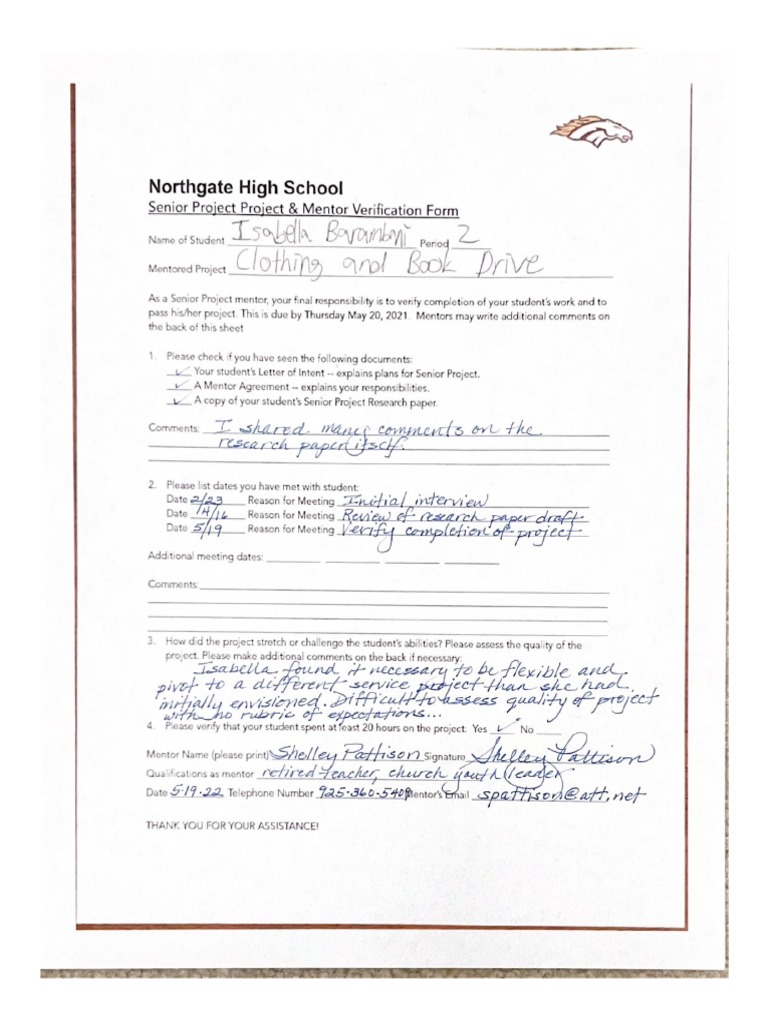 Northgate High School
Senior Project Project & Mentor Verification Form
Name of Student Isabella Period 2
Mentored Project Clothing and Book Drive
As a Senior Project mentor, your final responsibility is to verify completion of your student's work and to
pass his/her project. This is due by Thursday May 20, 2021. Mentors may write additional comments on
the back of this sheet
1. Please check if you have seen the following documents:
✓ Your student's Letter of Intent -- explains plans for Senior Project.
✓ A Mentor Agreement -- explains your responsibilities.
✓ A copy of your student's Senior Project Research paper.
Comments: I shared many comments on the
research paper itself.
2. Please list dates you have met with student:
Date 2/23 Reason for Meeting Initial interview
Date Reason for Meeting Review of research paper draft
Date 5/19 Reason for Meeting Verify completion of project
Additional meeting dates:
Comments:
3. How did the project stretch or challenge the student's abilities? Please assess the quality of the
project. Please make additional comments on the back if necessary:
Isabella found it necessary to be flexible and
pivot to a different service project than she had
initially envisioned. Difficult to assess quality of project
with no rubric of expectations...
4. Please verify that your student spent at least 20 hours on the project: Yes ✓ No
Mentor Name (please print) Shelley Pattison Signature Shelley Pattison
Qualifications as mentor retired teacher, church youth leader
Date 5.19.22 Telephone Number 925-360-5409 Mentor's Email spattison@att.net
THANK YOU FOR YOUR ASSISTANCE!